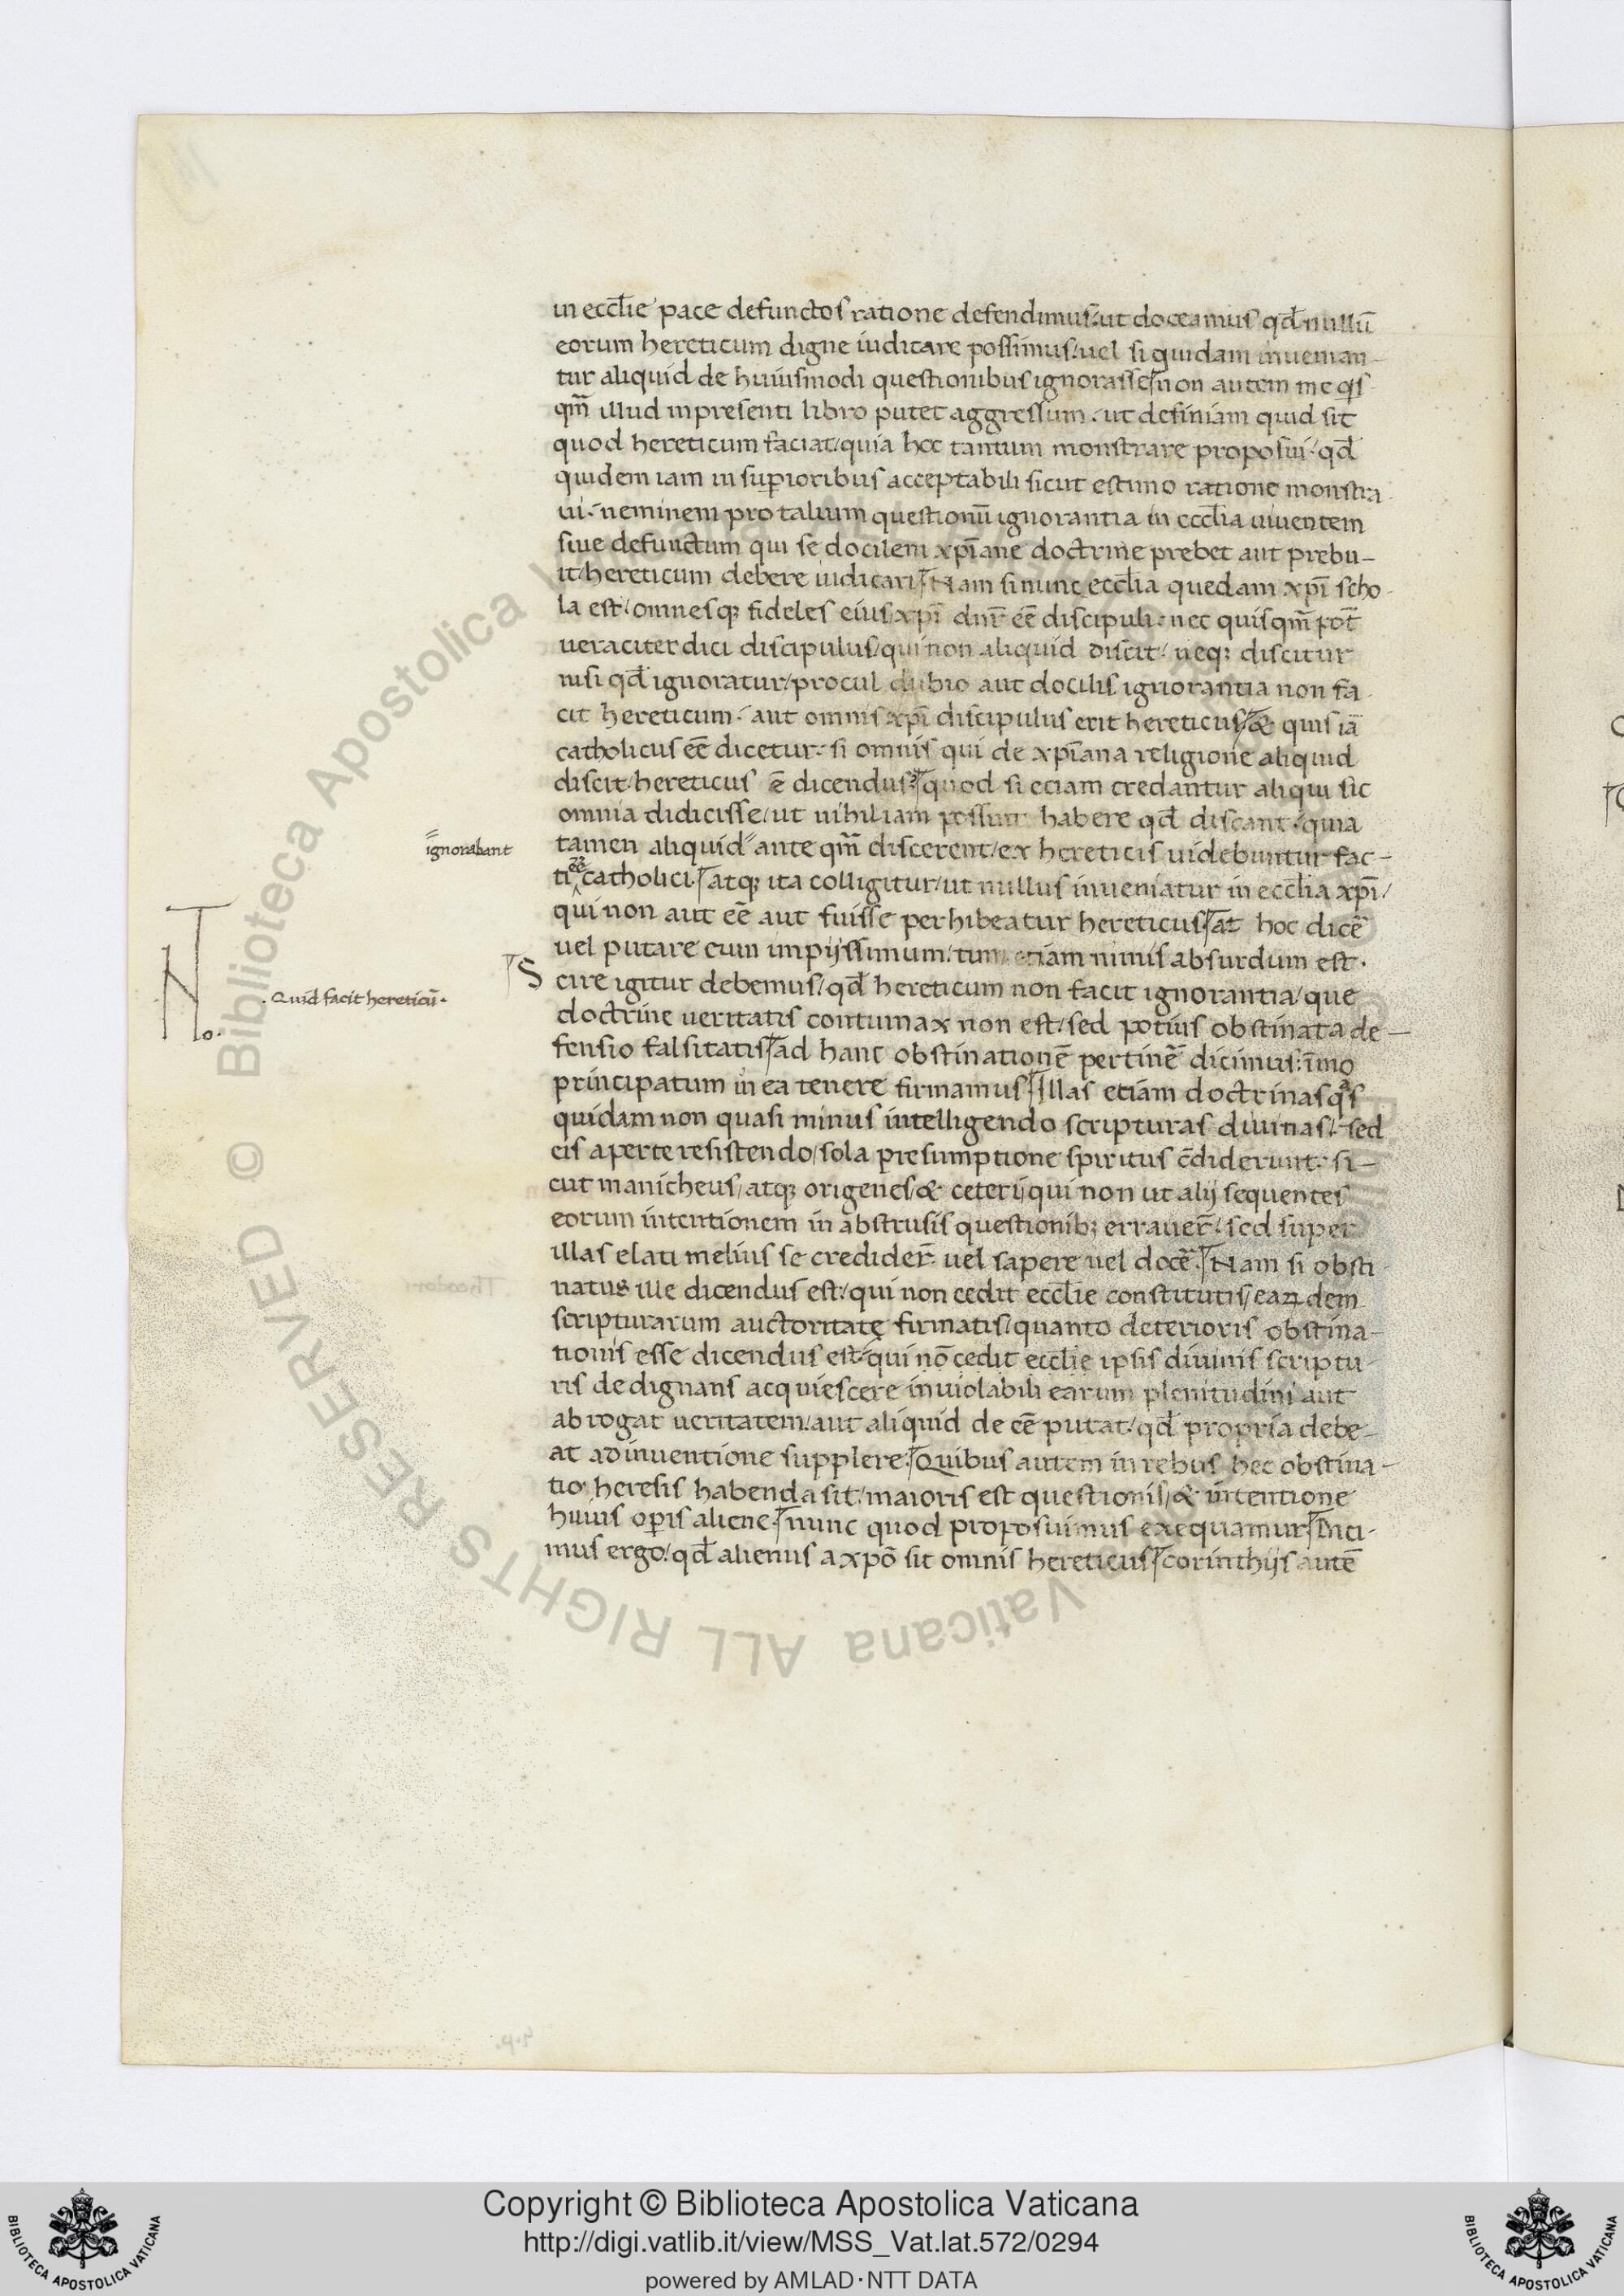 in eccl̅ie pace defunctos ratione defendimus: ut doceamus qd̅ nullū
eorum hereticum digne iudicare possimus: uel si quidam inuenian-
tur aliquid de huiusmodi questionibus ignorasse non autem me qs
qm̅ illud in presenti libro putet aggressum: ut definiam quid sit
quod hereticum faciat/ quia hoc tantum monstrare proposui: qd̅
quidem iam in suꝑioribus acceptabili sicut estimo ratione monstra-
ui: neminem pro talium questionū ignorantia in eccl̅ia uiuentem
siue defunctum qui se docilem xp̅iane doctrine prebet aut prebu-
it/ hereticum debere iudicari Nam si nunc eccl̅ia quedam xp̅i scho-
la est/ omnesq; fideles eius/ xp̅i dnr̅ ee̅ discipuli: nec quisqm̅ pot̅
ueraciter dici discipulus/ qui non aliquid discit/ neq; discitur
nisi qd̅ ignoratur/ procul dubio aut docilis ignorantia non fa-
cit hereticum: aut omnis xp̅i discipulus erit hereticus/ & quis iā
catholicus ee̅ dicetur: si omnis qui de xp̅iana religione aliquid
discit/ hereticus e̅ dicendus: quod si eciam credantur aliqui sic
omnia didicisse/ ut nihil iam possint habere qd̅ discant: quia
ignorabant
tamen aliquid ante qm̅ discerent/ ex hereticis uidebuntur fac-
ti ee̅ catholici. atq; ita colligitur/ ut nullus inueniatur in eccl̅ia xp̅i/
qui non aut ee̅ aut fuisse perhibeatur hereticus at hoc dice̅
uel putare cum impijssimum/ tum etiam nimis absurdum est.
No.
. Quid facit hereticū .
Scire igitur debemus/ qd̅ hereticum non facit ignorantia/ que
doctrine ueritatis contumax non est/ sed potius obstinata de-
fensio falsitatis ad hanc obstinatione̅ pertine̅ dicimus: īmo
principatum in ea tenere firmamus Illas etiam doctrinas qs
quidam non quasi minus intelligendo scripturas diuinas: sed
eis aperte resistendo/ sola presumptione spiritus c̅diderunt: si-
cut manicheus/ atq; origenes/ & ceteri qui non ut alij sequentes
eorum intentionem in abstrusis questionib; errauer̅/ sed super
illas elati melius se credider̅ uel sapere uel doce̅. Nam si obsti-
natus ille dicendus est/ qui non cedit eccl̅ie constitutis/ eaꝝdem
scripturarum auctoritate firmatis/ quanto deterioris obstina-
tionis esse dicendus est/ qui nō cedit eccl̅ie ipsis diuinis scriptu-
ris dedignans acquiescere inuiolabili earum plenitudini aut
abrogat ueritatem/ aut aliquid de ee̅ putat/ qd̅ propria debe-
at adinuentione supplere. Quibus autem in rebus hec obstina-
tio heresis habenda sit/ maioris est questionis/ & intentione
huius oꝑis aliene. nunc quod proposuimus exequamur Dici-
mus ergo/ qd̅ alienus a xp̅o sit omnis hereticus corinthijs aute̅
Biblioteca Apostolica Vaticana ALL RIGHTS RESERVED ©
Copyright © Biblioteca Apostolica Vaticana
http://digi.vatlib.it/view/MSS_Vat.lat.572/0294
powered by AMLAD·NTT DATA
BIBLIOTECA APOSTOLICA VATICANA
BIBLIOTECA APOSTOLICA VATICANA